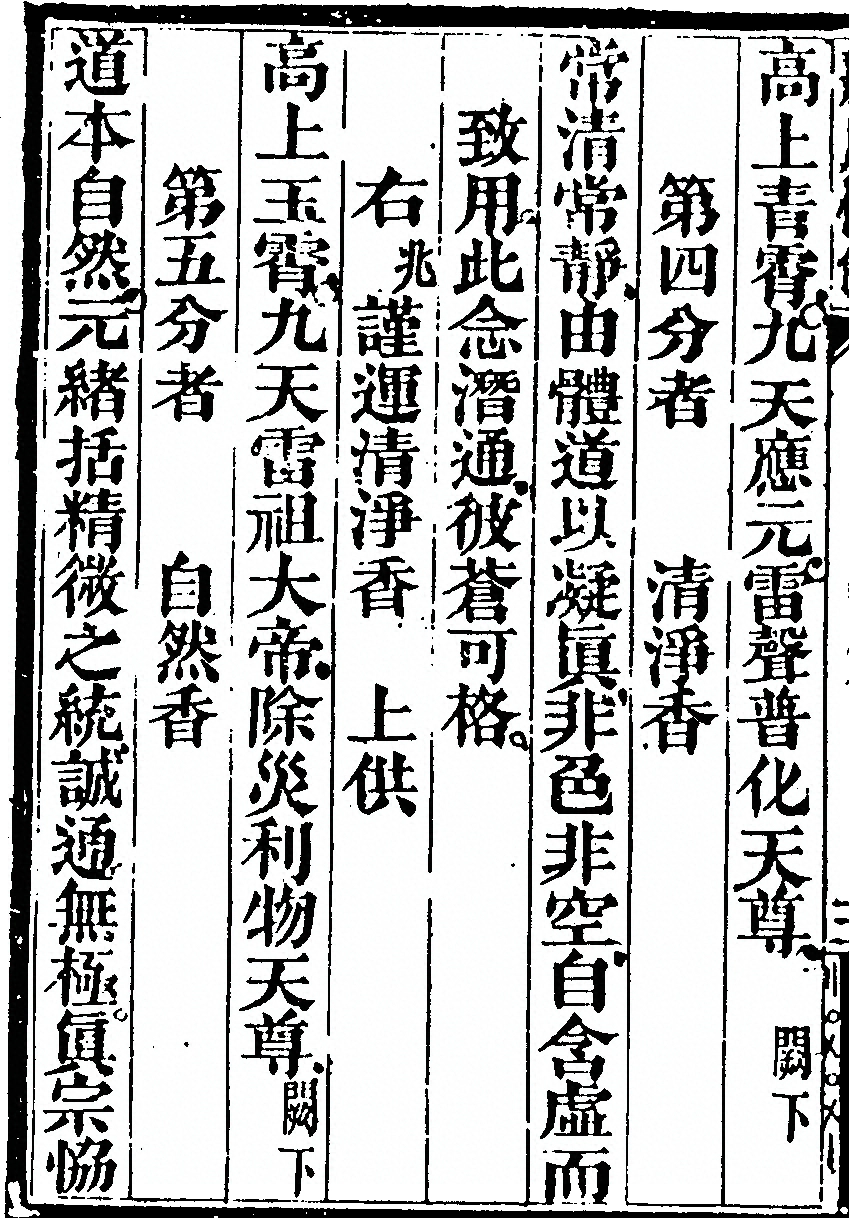 高上青霄九天應元雷聲普化天尊 闕下
第四分者 清淨香
常清常靜由體道以凝眞非色非空自含虛而
致用此念潛通彼蒼可格
右兆謹運清淨香 上供
高上玉霄九天雷祖大帝除災利物天尊 闕下
第五分者 自然香
道本自然元緒括精微之統誠通無極眞宗恊